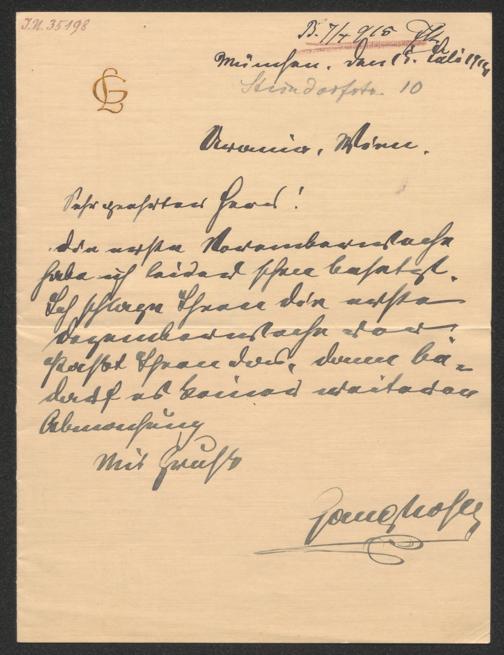 I.N. 35198
B. 7/4 915
München, den 15. Juli 1914
Steinsdorfstr. 10
GL
Urania, Wien.
Sehr geehrter Herr!
die erste Novemberwoche
habe ich leider schon besetzt.
Ich schlage Ihnen die erste
Dezemberwoche vor.
Passt Ihnen das, dann be-
darf es keiner weiteren
Abmachung
Mit Gruß
Ganghofer